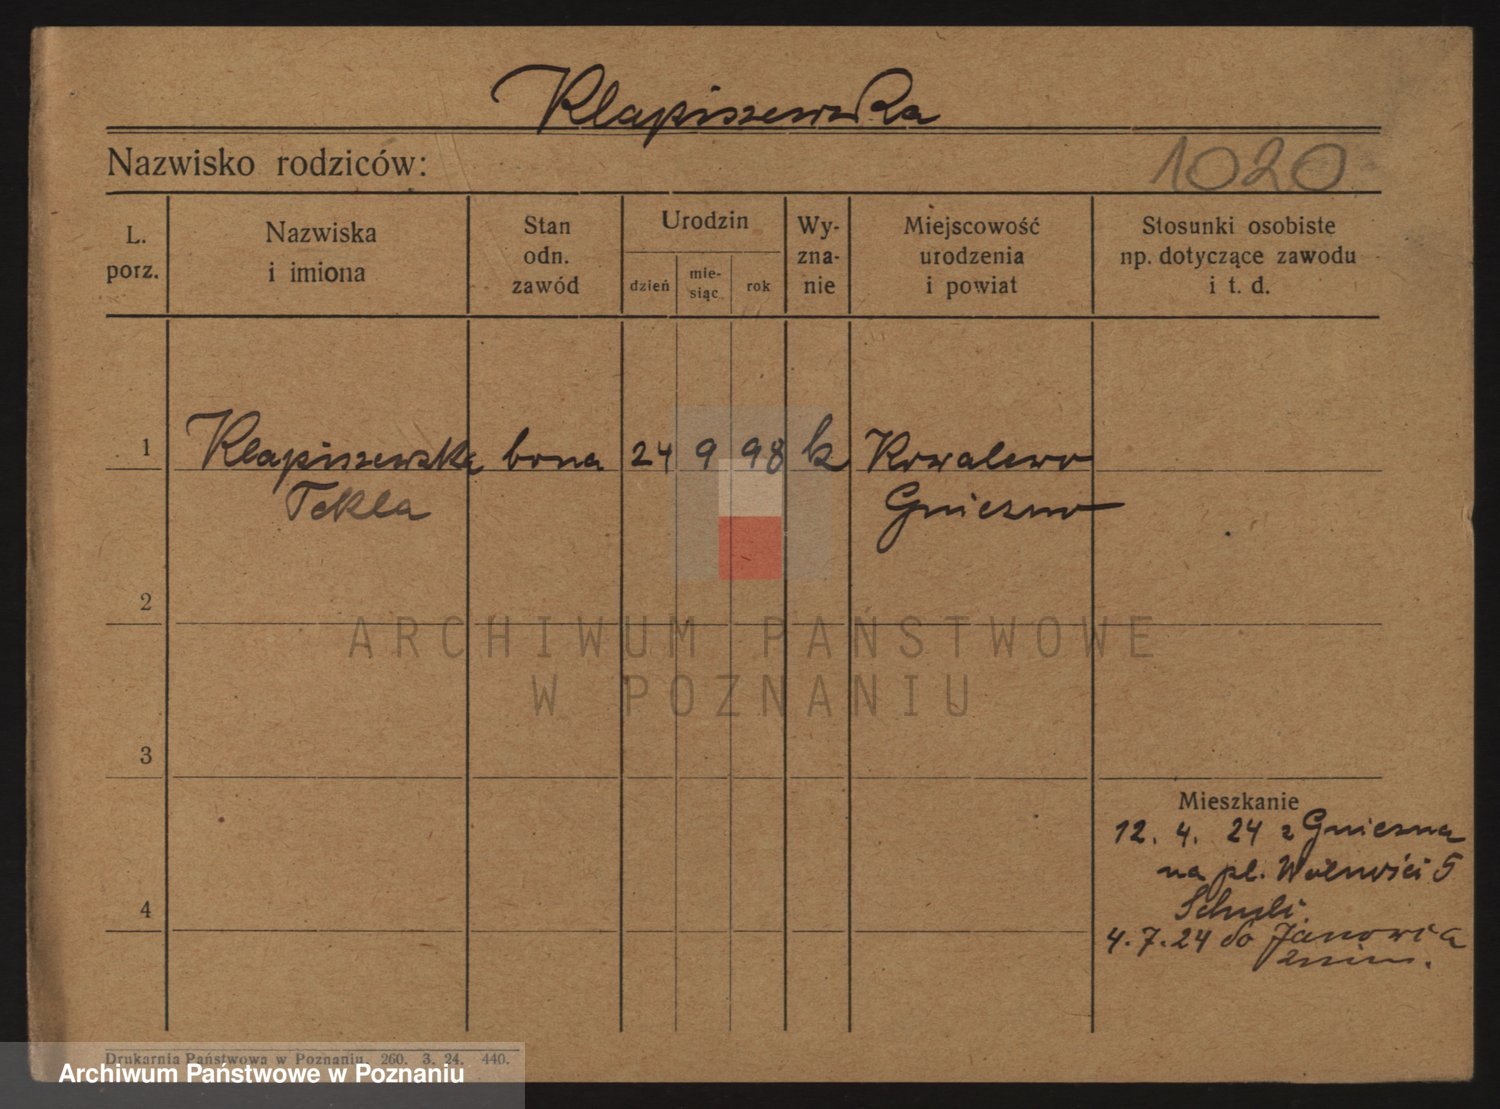 Klapiszewska
Nazwisko rodziców:
1020
L. porz.
Nazwiska i imiona
Stan odn. zawód
Urodzin
dzień
mie-siąc
rok
Wy-zna-nie
Miejscowość urodzenia i powiat
Stosunki osobiste np. dotyczące zawodu i t. d.
1 Klapiszewska bona 24 9 98 k Kowalewo
Tekla Gniezno
2
ARCHIWUM PAŃSTWOWE
W POZNANIU
3
Mieszkanie
12. 4. 24 z Gniezna
na pl. Wolności 5
4
4.7.24 do Janowca
Drukarnia Państwowa w Poznaniu. 260. 3. 24. 440.
Archiwum Państwowe w Poznaniu